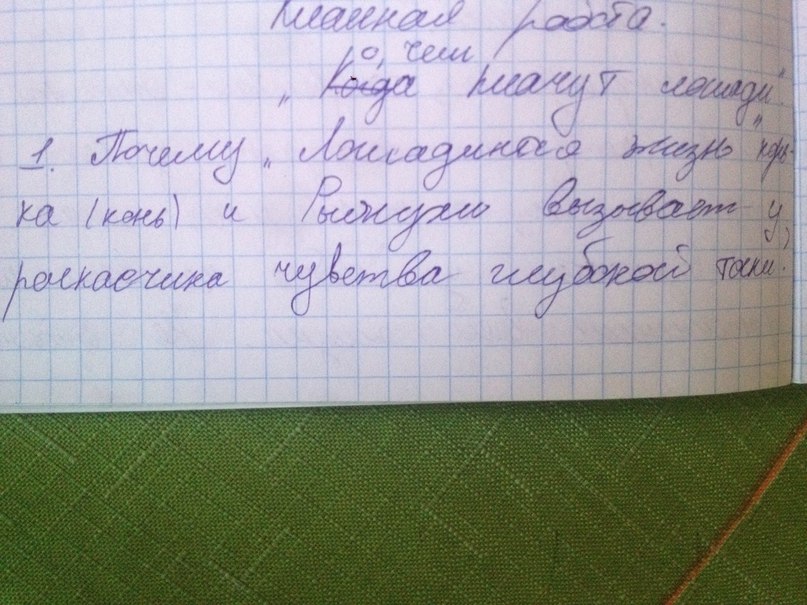 Классная работа.
о, чем
„ Когда плачут лошади".
1. Почему „ Лошадиная жизнь" карь-
ка (конь) и Рыжухи вызывает у
раскасчика чувства глубокой тоски?